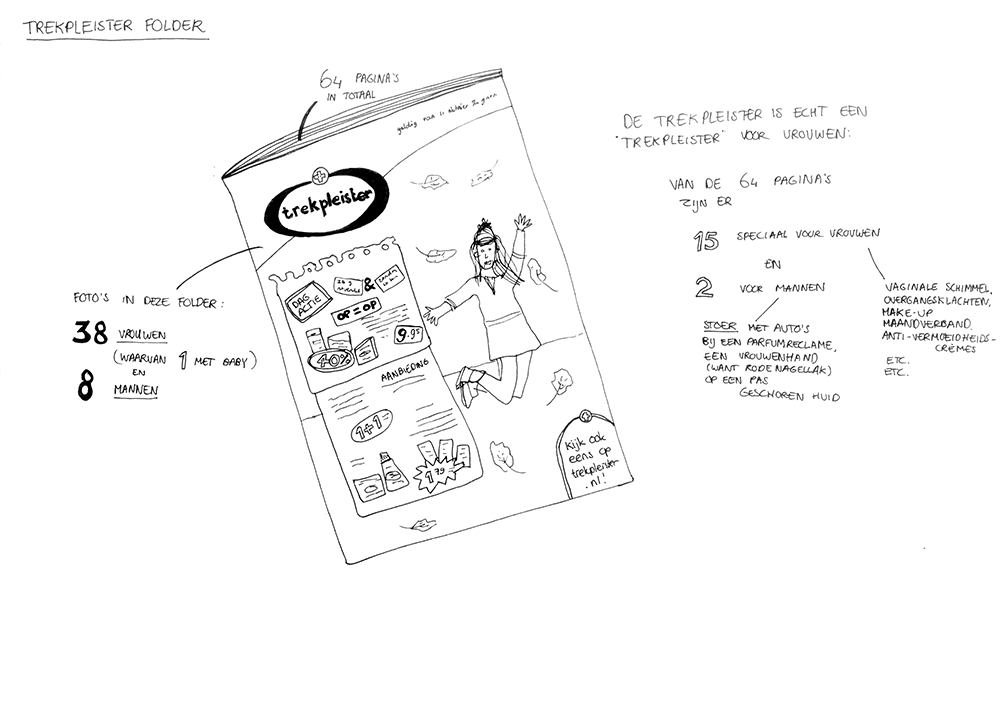 TREKPLEISTER FOLDER
64 PAGINA'S
IN TOTAAL
geldig van 11 oktober
trekpleister
DAG
ACTIE
&
OP = OP
9.95
40%
AANBIEDING
1+1=
1 79
Kijk ook
eens op
trekpleister
.nl!
FOTO'S IN DEZE FOLDER:
38 VROUWEN
(WAARVAN 1 MET BABY)
EN
8 MANNEN
DE TREKPLEISTER IS ECHT EEN
"TREKPLEISTER" VOOR VROUWEN:
VAN DE 64 PAGINA'S
ZIJN ER
15 SPECIAAL VOOR VROUWEN
EN
2 VOOR MANNEN
STOER MET AUTO'S
BIJ EEN PARFUMRECLAME,
EEN VROUWENHAND
(WANT RODE NAGELLAK)
OP EEN PAS
GESCHOREN HUID
VAGINALE SCHIMMEL,
OVERGANGSKLACHTEN,
MAKE-UP
MAANDVERBAND
ANTI-VERMOEIDHEIDS-
CRÈMES
ETC.
ETC.